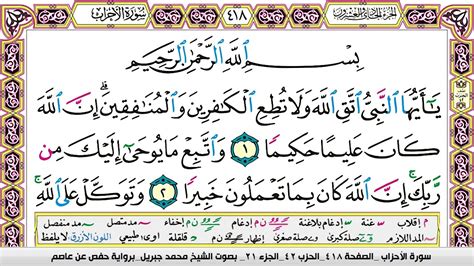 الجزء الحادي والعشرون
٤١٨
سورة الأحزاب
بِسْمِ ٱللَّهِ ٱلرَّحْمَٰنِ ٱلرَّحِيمِ
يَٰٓأَيُّهَا ٱلنَّبِيُّ ٱتَّقِ ٱللَّهَ وَلَا تُطِعِ ٱلْكَٰفِرِينَ وَٱلْمُنَٰفِقِينَۗ إِنَّ ٱللَّهَ
كَانَ عَلِيمًا حَكِيمًا ١ وَٱتَّبِعْ مَا يُوحَىٰٓ إِلَيْكَ مِن
رَّبِّكَۚ إِنَّ ٱللَّهَ كَانَ بِمَا تَعْمَلُونَ خَبِيرًا ٢ وَتَوَكَّلْ عَلَى ٱللَّهِۚ
م إقلاب غنة إدغام بلاغنة م ن إدغام إخفاء مد متصل مد منفصل
المد اللازم صلة كبرى صلة صغرى إظهار قلقلة ا و ي: طبيعي اللون الأزرق: لا يلفظ
سورة الأحزاب _ الصفحة ٤١٨ _ الحزب ٤٢ _ الجزء ٢١ _ بصوت الشيخ محمد جبريل _ برواية حفص عن عاصم